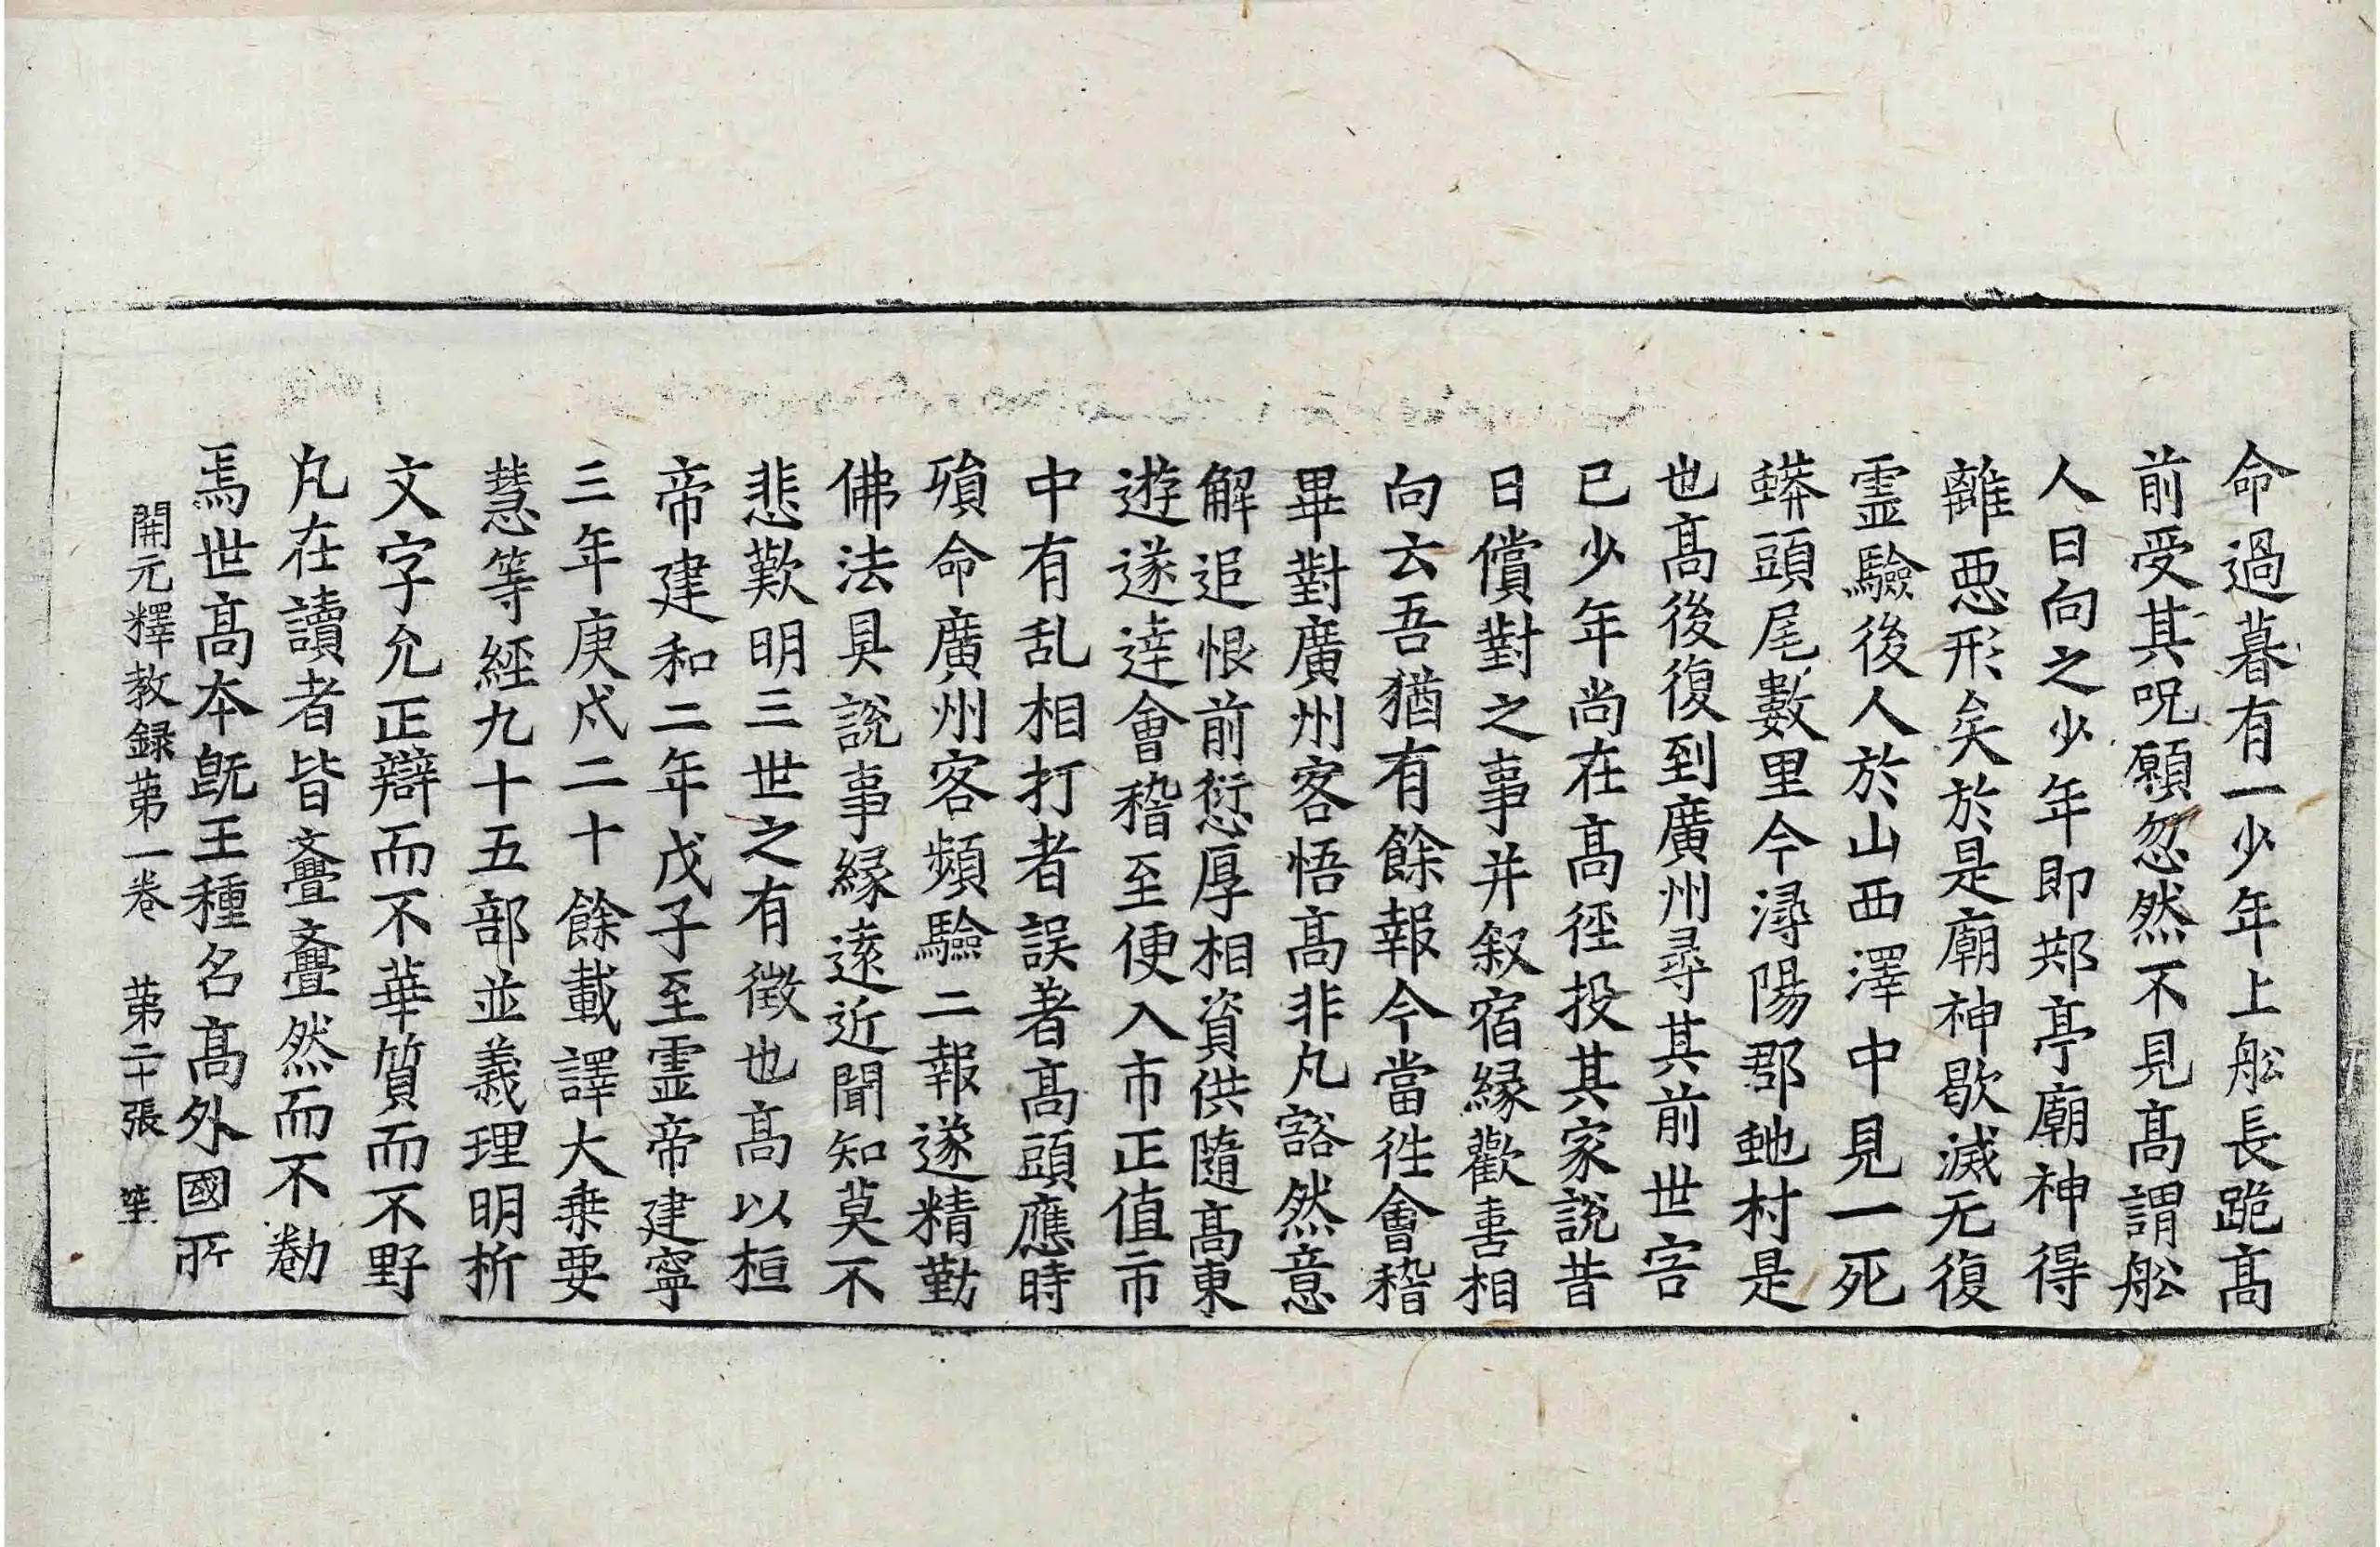 命過暮有一少年上舩長跪髙
前受其呪願忽然不見髙謂舩
人曰向之少年即䢼亭廟神得
離惡形矣於是廟神歇滅无復
霊驗後人於山西澤中見一死
蟒頭尾數里今潯陽郡虵村是
也髙後復到廣州尋其前世害
已少年尚在髙徑投其家說昔
日償對之事并叙宿縁歡喜相
向云吾猶有餘報今當徃會稽
畢對廣州客悟髙非凡豁然意
解追恨前愆厚相資供隨髙東
遊遂逹會稽至便入市正值市
中有乱相打者誤著髙頭應時
殞命廣州客頻驗二報遂精勤
佛法具說事縁逺近聞知莫不
悲歎明三世之有徵也髙以桓
帝建和二年戊子至霊帝建寧
三年庚戌二十餘載譯大乗要
慧等經九十五部並義理明析
文字允正辯而不華質而不野
凡在讀者皆亹亹然而不勌
焉世髙本旣王種名髙外國所
開元釋教録苐一卷 苐二十張